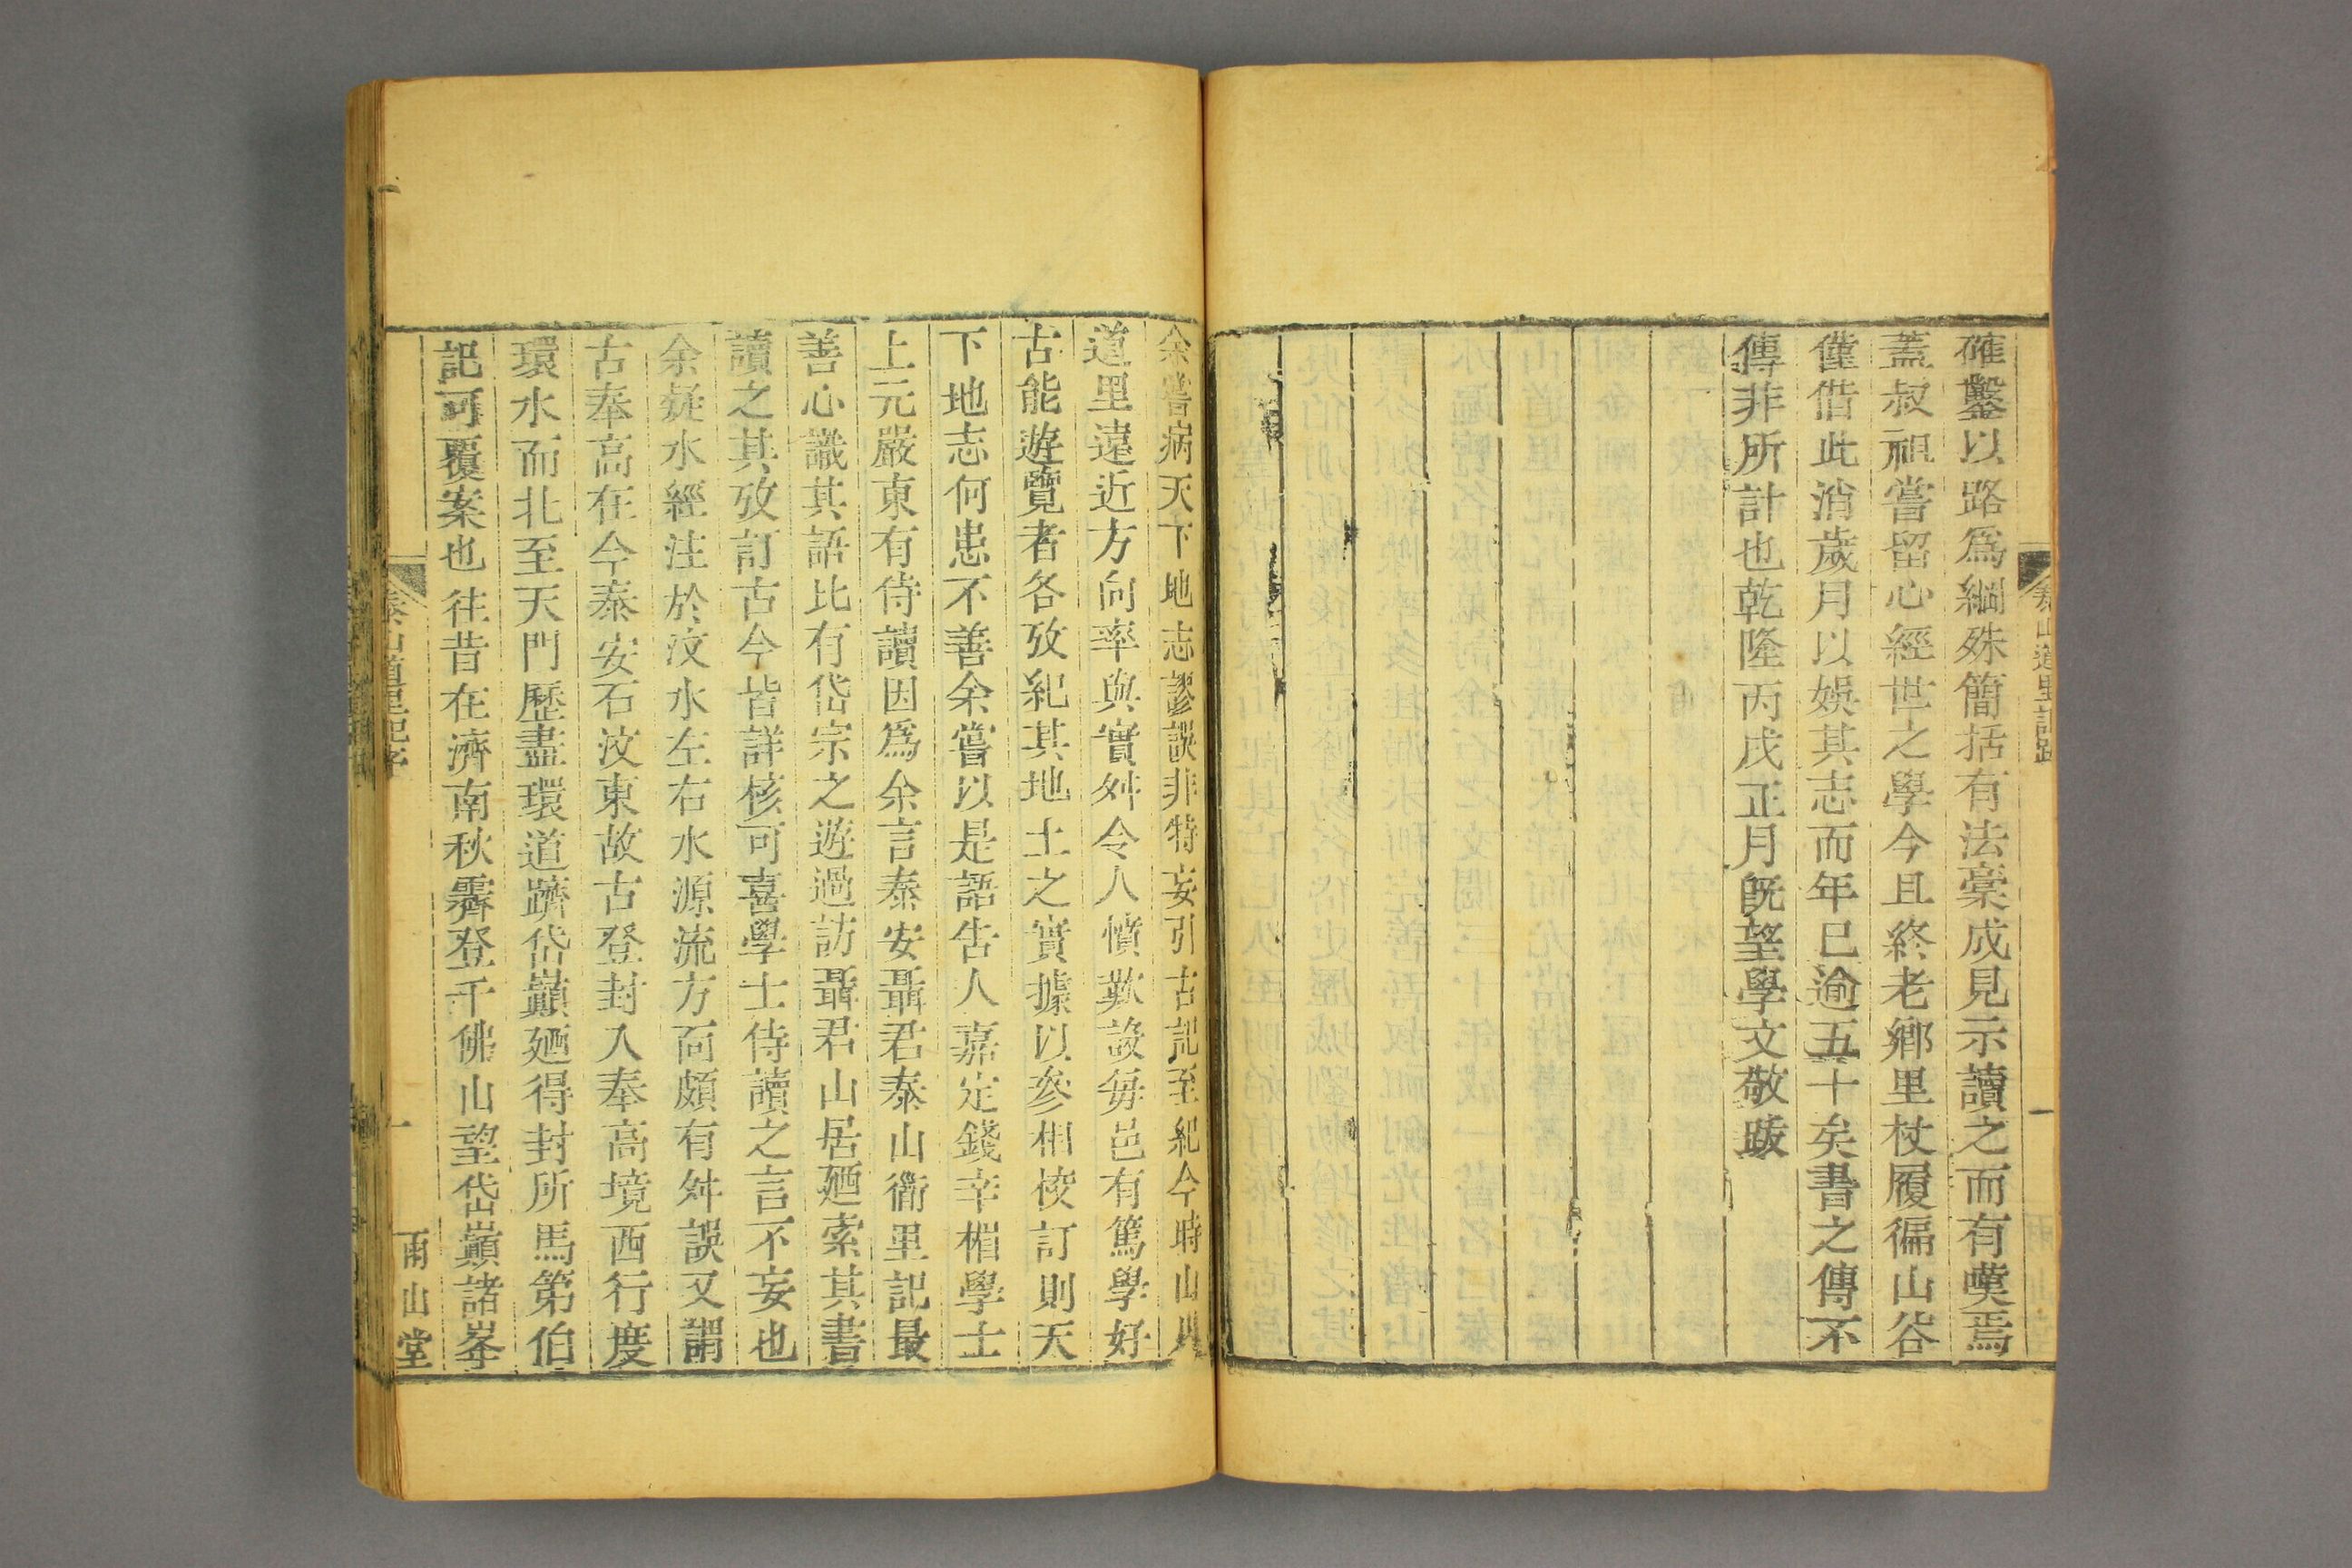 確鑿以路為綱殊簡括有法藁成見示讀之而有嘆焉
蓋叔祖嘗留心經世之學今且終老鄉里杖履徧山谷
僅借此消歲月以娛其志而年已逾五十矣書之傳不
傳非所計也乾隆丙戌正月既望學文敬跋
泰山道里記跋
一
余嘗病天下地志謬誤非特妄引古記至紀今時山川
道里遠近方向率與實舛令人憤歎設每邑有篤學好
古能遊覽者各攷紀其地土之實據以參相校訂則天
下地志何患不善余嘗以是語告人嘉定錢辛楣學士
上元嚴東有侍讀因為余言泰安聶君泰山衜里記最
善心識其語比有岱宗之遊過訪聶君山居廼索其書
讀之其攷訂古今皆詳核可喜學士侍讀之言不妄也
余疑水經注於汶水左右水源流方向頗有舛誤又謂
古奉高在今泰安右汶東故古登封入奉高境西行度
環水而北至天門歷盡環道躋岱巔廼得封所馬第伯
記可覆案也往昔在濟南秋霽登千佛山望岱巔諸峯
泰山道里記序
一
雨山堂